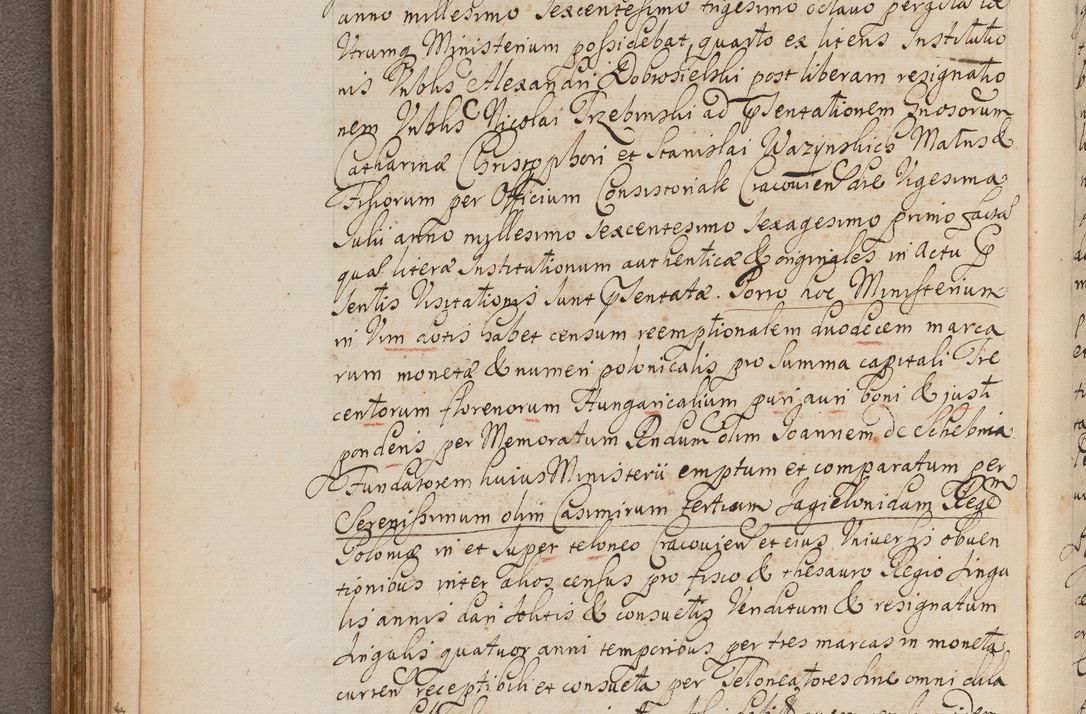 anno millesimo sexcentesimo trigesimo octavo pergula
Utrumq Ministerium possidebat, quarto ex literis Institutio
nis Vnblis Alexandri Dobrosielski post liberam resignatio
nem Vnblis Nicolai Trzebinski ad pnsentationem Gnosorum
Catharinæ Christophori et Stanislai Wazynskich Matris &
Filiorum per Officium Consistoriale Cracovien die Vigesima
Julii anno millesimo sexcentesimo sexagesimo primo facta
quæ literæ Institutionum authenticæ & originales in actu p
sentis Visitationis sunt pnsentatæ. Porro hoc Ministerium
in Vim dotis habet censum reemptionalem duodecem marca
rum monetæ & numeri polonicalis pro summa capitali Tre
centorum florenorum Hungaricalium puri auri boni & justi
ponderis per Memoratum Rndum olim Joannem de Schebnia
Fundatorem huius Ministerii emptum et comparatum per
Serenissimum olim Casimirum Tertium Jagielonidam Regem
Poloniæ in et super teloneo Cracovien et eius Universis obven
tionibus inter alios census pro fisco & thesauro Regio singu
lis annis dari solitis & consuetis Venditum & resignatum
singulis quatuor anni temporibus per tres marcas in moneta
curren receptibili et consueta per Teloneatores sine omni dila